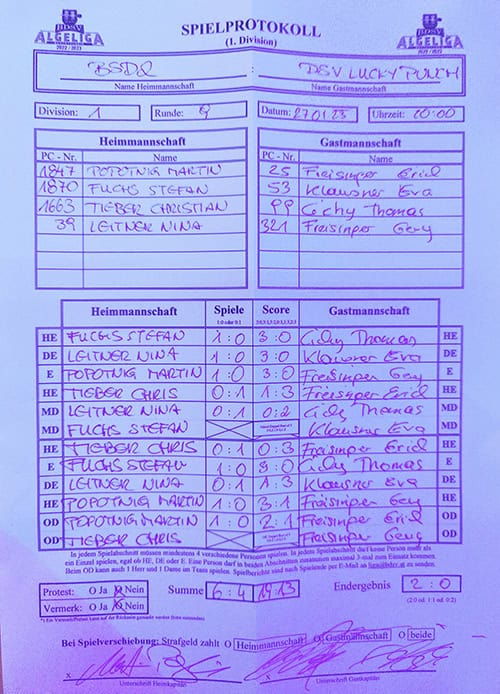 BDSV
ALGELIGA
2022 / 2023
SPIELPROTOKOLL
(1. Division)
BDSV
ALGELIGA
2022 / 2023
BSDQ
DSV LUCKY PUNCH
Name Heimmannschaft
Name Gastmannschaft
Division: 1
Runde: 9
Datum: 27.01.23
Uhrzeit: 20:00
Heimmannschaft
Gastmannschaft
PC - Nr. Name
PC - Nr. Name
1847 POPOTNIG MARTIN
25 Freisinger Erid
1870 FUCHS STEFAN
53 Klausner Eva
1663 TIEBER CHRISTIAN
99 Cichy Thomas
39 LEITNER NINA
321 Freisinger Gery
Heimmannschaft Spiele Score Gastmannschaft
1:0 oder 0:1
HE FUCHS STEFAN 1:0 3:0 Cichy Thomas HE
DE LEITNER NINA 1:0 3:0 Klausner Eva DE
E POPOTNIG MARTIN 1:0 3:0 Freisinger Gery E
HE TIEBER CHRIS 0:1 1:3 Freisinger Erid HE
MD LEITNER NINA 0:1 0:2 Cichy Thomas MD
MD FUCHS STEFAN Klausner Eva MD
HE TIEBER CHRIS 0:1 0:3 Freisinger Erid HE
E FUCHS STEFAN 1:0 3:0 Cichy Thomas E
DE LEITNER NINA 0:1 1:3 Klausner Eva DE
HE POPOTNIG MARTIN 1:0 3:1 Freisinger Gery HE
OD POPOTNIG MARTIN 1:0 2:1 Freisinger Erid OD
OD TIEBER CHRIS Freisinger Gery OD
In jedem Spielabschnitt müssen mindestens 4 verschiedene Personen spielen. In jedem Spielabschnitt darf keine Person mehr als
ein Einzel spielen, egal ob HE, DE oder E. Eine Person darf in beiden Abschnitten zusammen maximal 3-mal zum Einsatz kommen.
Beim OD kann auch 1 Herr und 1 Dame im Team spielen. Spielberichte sind nach Spielende per E-Mail an zu senden.
Protest: O Ja O Nein
Summe 6:4 19:13
Endergebnis 2:0
Vermerk: O Ja O Nein
(2:0 od. 1:1 od. 0:2)
*) Ein Vermerk/Protest kann auf der Rückseite gemacht werden (bitte unterenden)
Bei Spielverschiebung: Strafgeld zahlt O Heimmannschaft O Gastmannschaft O beide
x
x
Unterschrift Heimkapitän
Unterschrift Gastkapitän